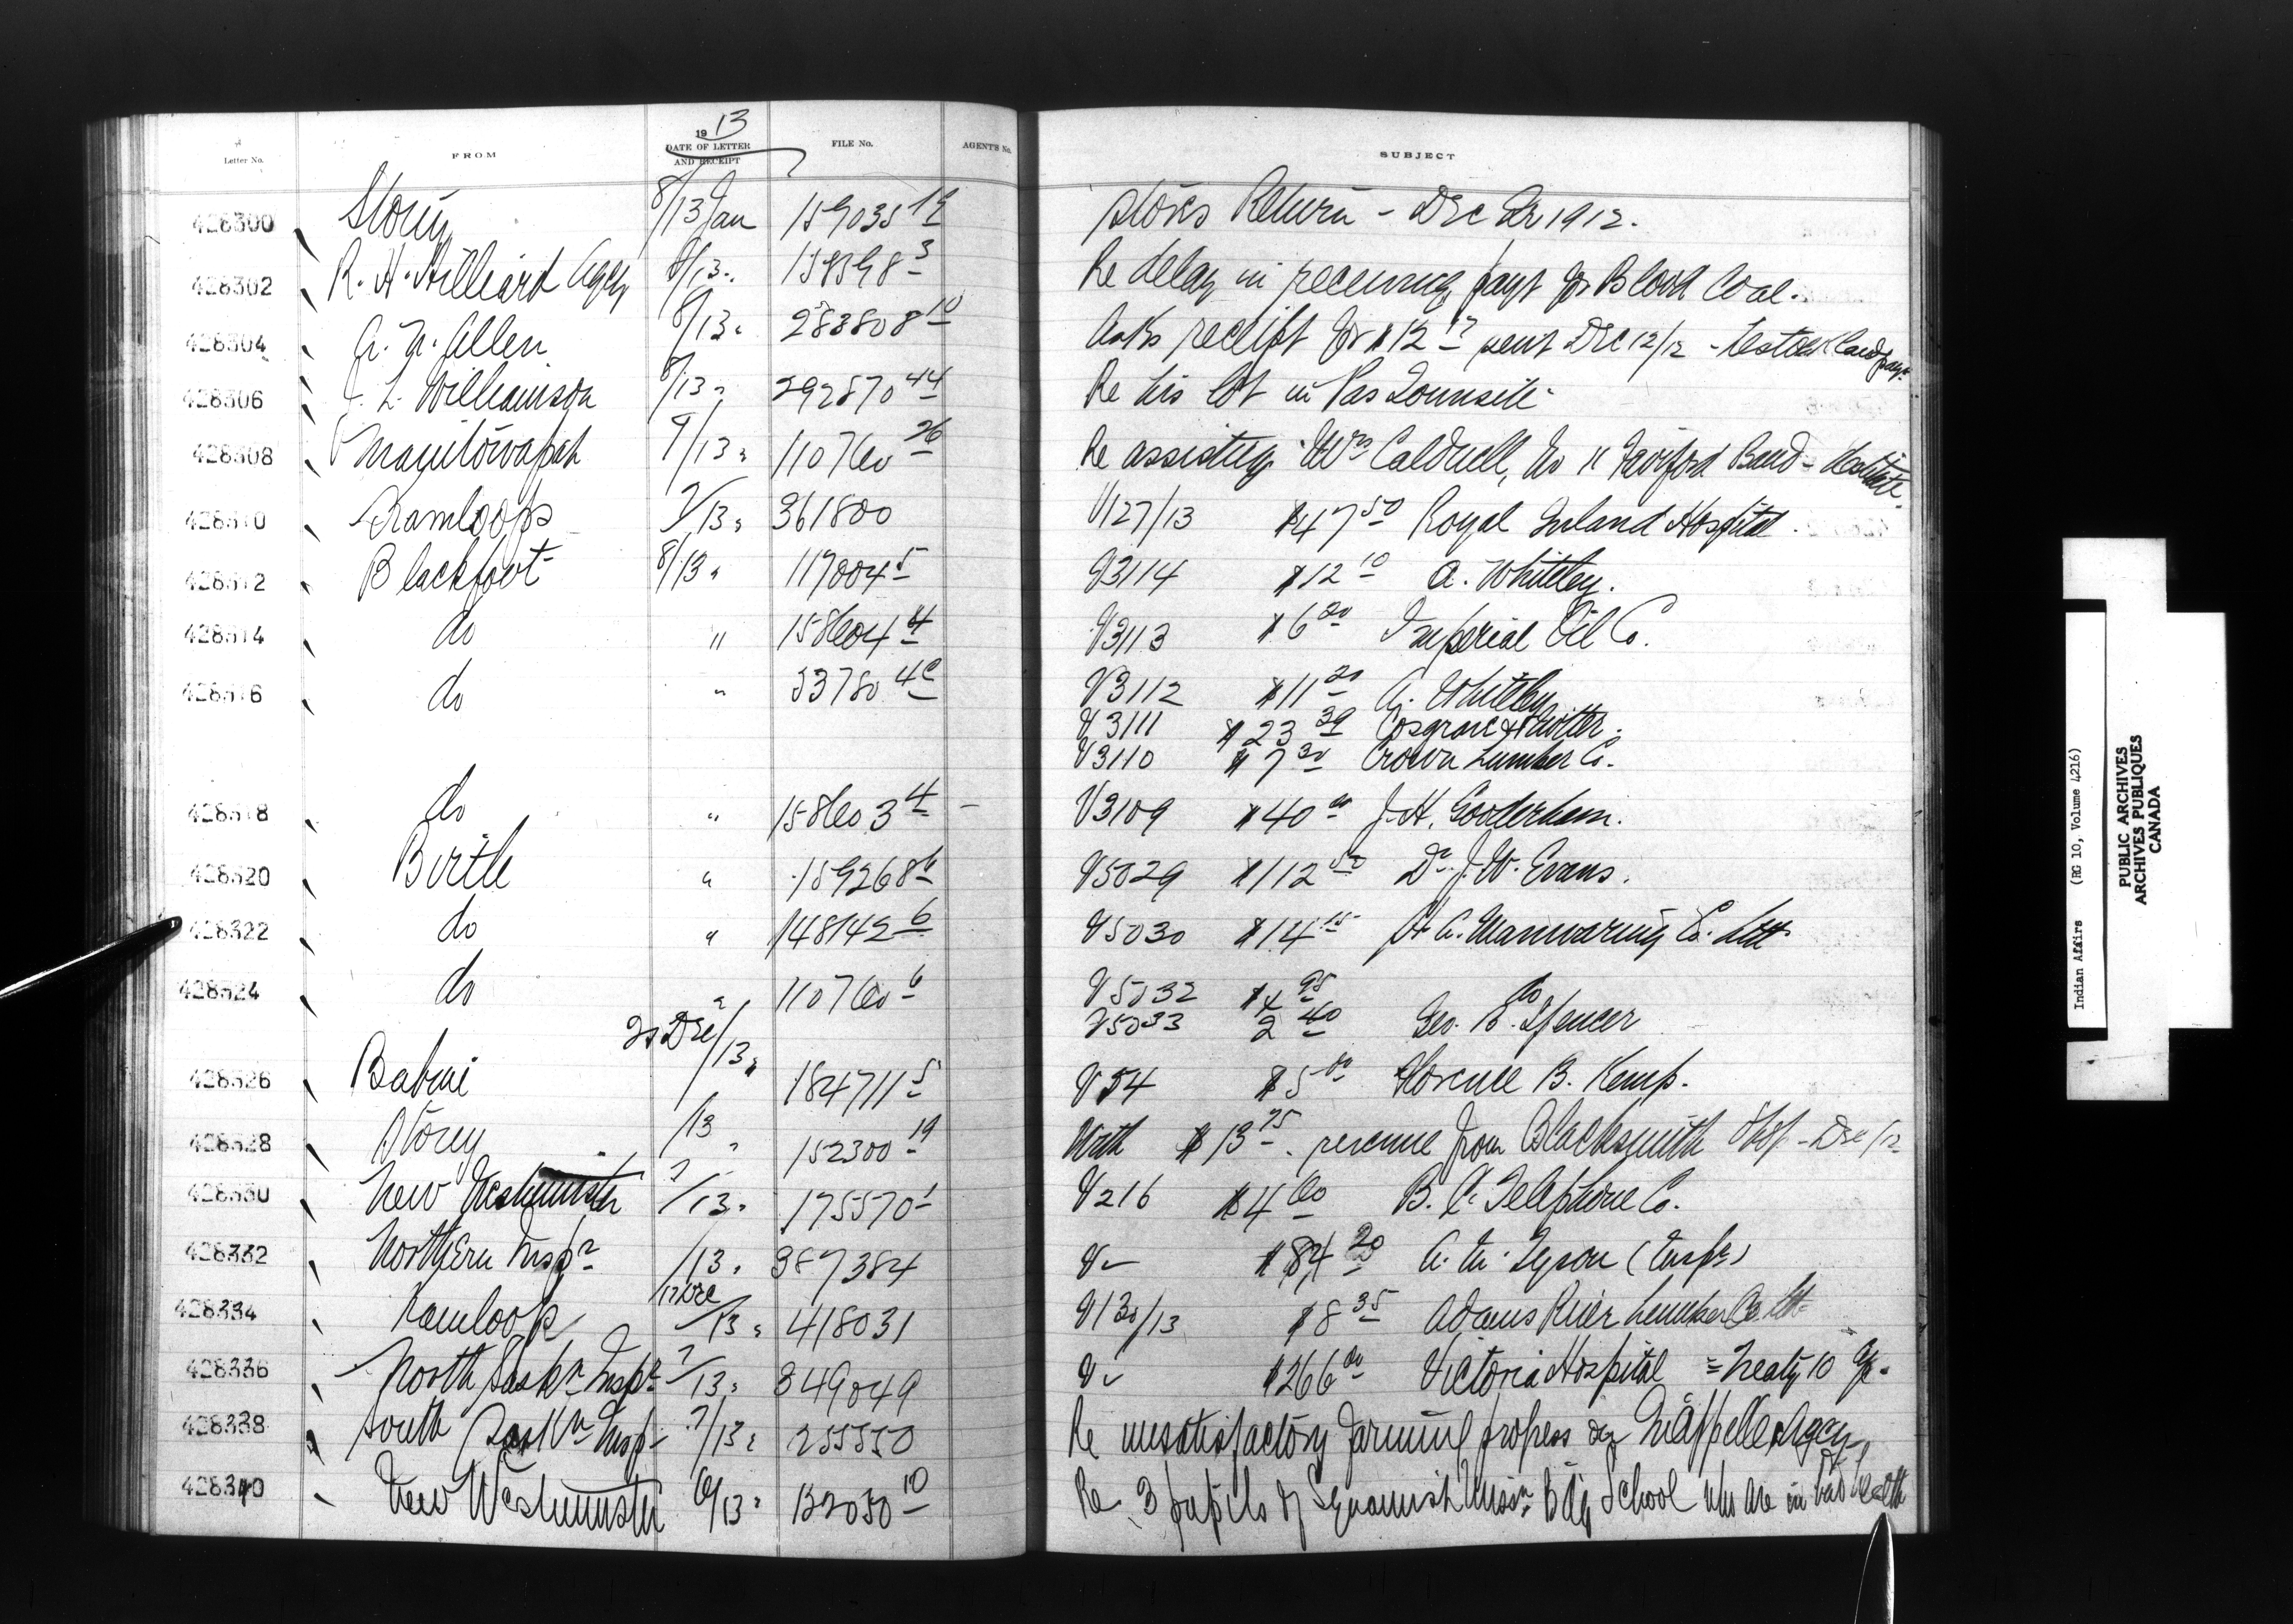 1913
Letter No. FROM DATE OF LETTER AND RECEIPT FILE No. AGENT'S No. SUBJECT
428300 Stony 8/13 Jan 159035 19 Stores Return - Dec Qr 1912.
428302 R. H. Hilliard Agcy 8/13 " 158598 3 Re delay in receiving payt for Blood Coal.
428304 A. Allen 8/13 " 283808 10 Asks receipt for $12 sent Dec 12/12 - land payt
428306 J. L. Williamson 8/13 " 292870 44 Re his lot in Pas Townsite
428308 Manitowapah 9/13 " 110760 26 Re assisting Caldwell, No 11 Fairford Band - Destitute
428310 Kamloops 7/13 " 361800 V127/13 $47 50 Royal Inland Hospital
428312 Blackfoot 8/13 " 119004 5 V3114 $12 10 A. Whiteley.
428314 do " 158604 4 V3113 $6 20 Imperial Oil Co.
428316 do " 53780 4c V3112 $11 20 A. Whiteley
V3111 $23 39 Cosgrave &
V3110 $7 30 Crown Lumber Co.
428318 do " 158603 4 - V3109 $40 00 J. H. Gooderham.
428320 Birtle " 159268 6 V5029 $112 50 Dr. J. W. Evans.
428322 do " 148142 6 V5030 $14 15 H. A. Manwaring Co. Ltd
428324 do " 110760 6 V5032 $4 95 do
V5033 2 40 Geo. B. Spencer
428326 Babine Dec/13 " 184711 5 V54 $5 00 Florence B. Kemp.
428328 Storey /13 " 152300 19 With $13 75 revenue from Blacksmith Shop - Dec/12
428330 New Westminster 7/13 " 175570 1 V216 $4 60 B. C. Telephone Co.
428332 Northern Inspr /13 " 387384 V- $84 20 A. M. Tyson (Inspr)
428334 Kamloops 12 Dec/13 " 418031 V130/13 $8 35 Adams River Lumber Co Ltd
428336 North Saskn Inspr 7/13 " 349049 V- $266 00 Victoria Hospital = Treaty 10
428338 South Saskn Insp 7/13 " 255550 Re unsatisfactory farming progress Qu'Appelle Agcy
428340 New Westminster 6/13 " 132050 10 Re 3 pupils of Squamish Missn Bdg School who are in bad health
Indian Affairs (RG 10, Volume 4216)
PUBLIC ARCHIVES
ARCHIVES PUBLIQUES
CANADA